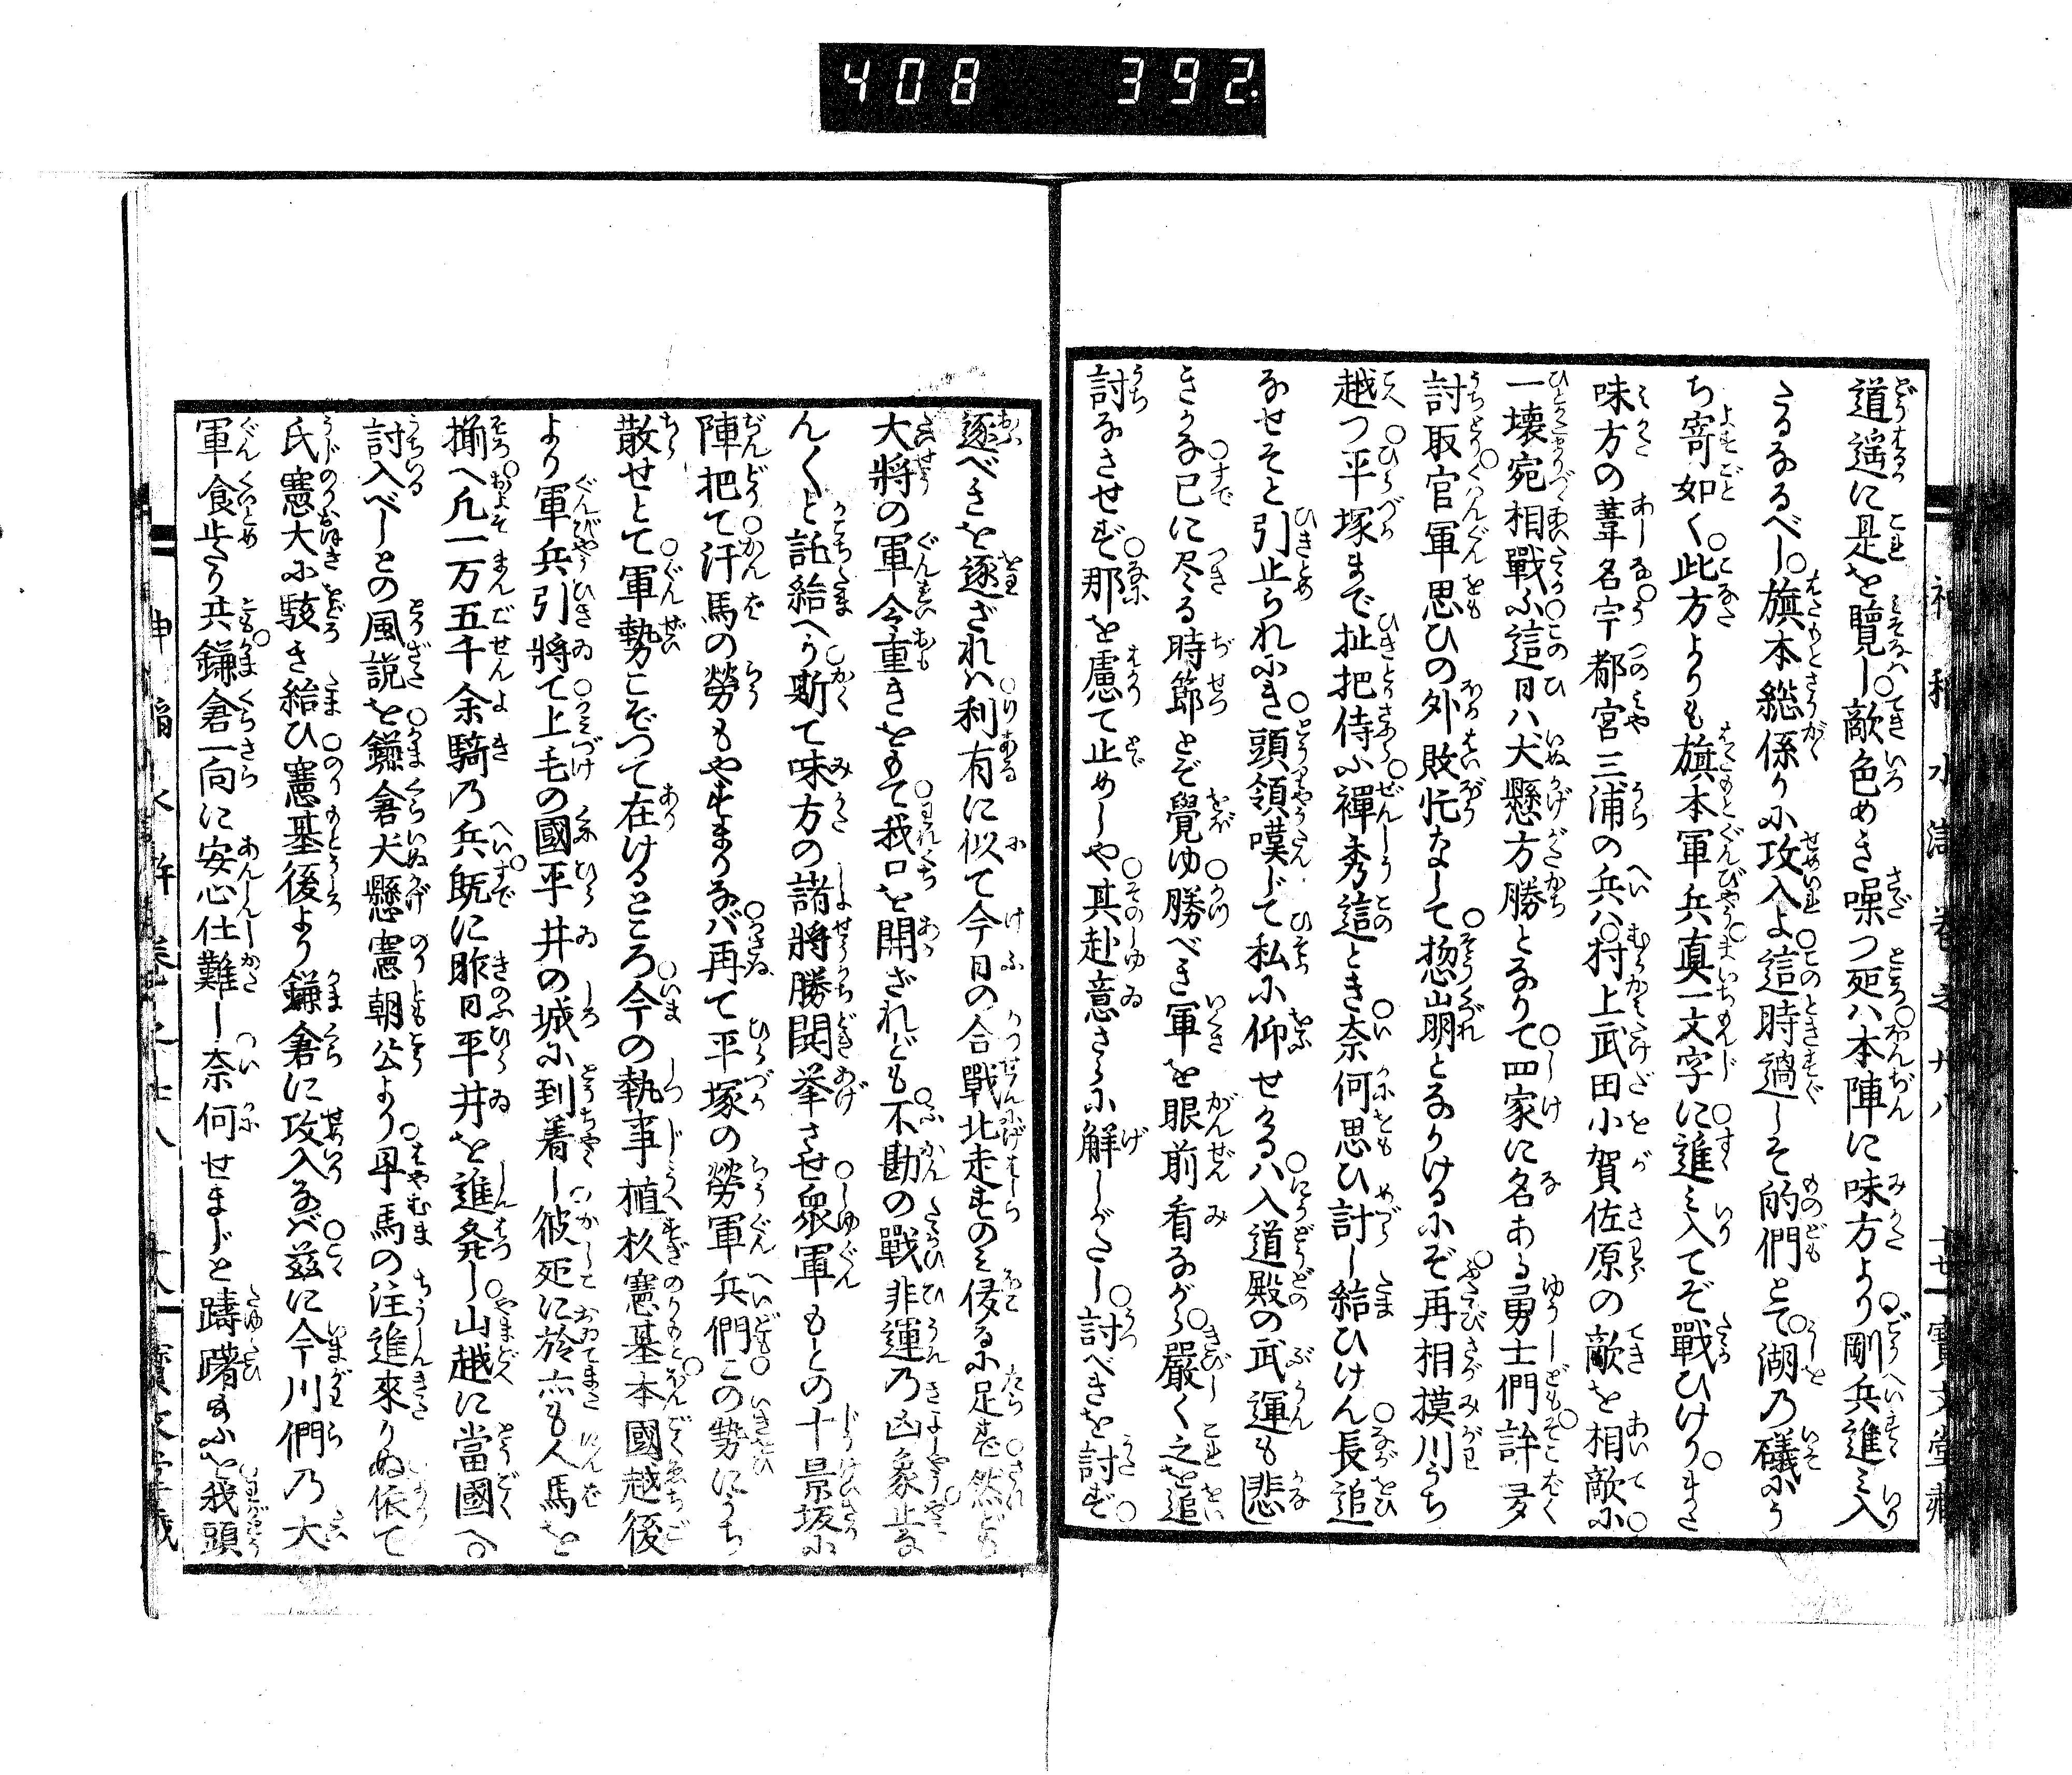 408 392.
道遥に是を覽し敵色めき噪つ処ハ本陣に味方より剛兵進ミ入
たるなるべし旗本総係りに攻入よ這時過しそ的們とて湖の礒にう
ち寄如く此方よりも旗本軍兵真一文字に進ミ入てぞ戰ひけりまた
味方の葦名宇都宮三浦の兵ハ村上武田小賀佐原の敵を相敵に
一壊宛相戰ふ這日ハ犬懸方勝となりて四家に名ある勇士們許多
討取官軍思ひの外敗忙なして惣崩となりけるにぞ再相摸川うち
越つ平塚まで扯把侍ふ禪秀這とき奈何思ひ計し給ひけん長追
なせそと引止られにき頭領嘆じて私に仰せけるハ入道殿の武運も悲
きかな已に尽る時節とぞ覺ゆ勝べき軍を眼前看ながら嚴く之を追
討なさせず那を慮て止めしや其赴意さらに解しがたし討べきを討ず
逐べきを逐ざれハ利有に似て今日の合戰北走すのミ侫るに足ず然ども
大將の軍令重きをもて我口を開ざれども不勘の戰非運の凶象止な
ん〳〵と託給へり斯て味方の諸將勝閧挙させ衆軍もとの十景坂に
陣把て汗馬の勞もやすまりなバ再て平塚の勞軍兵們この勢にうち
散せとて軍勢こぞつて在けるところ今の執事植杉憲基本國越後
より軍兵引將て上毛の國平井の城に到着し彼処に於亦も人馬を
揃へ凡一万五千余騎の兵既に昨日平井を進発し山越に當國へ
討入べしとの風説を鎌倉犬懸憲朝公より早馬の注進來りぬ依て
氏憲大に駭き給ひ憲基後より鎌倉に攻入なバ茲に今川們の大
軍食止たり共鎌倉一向に安心仕難し奈何せまじと躊躇ふを我頭